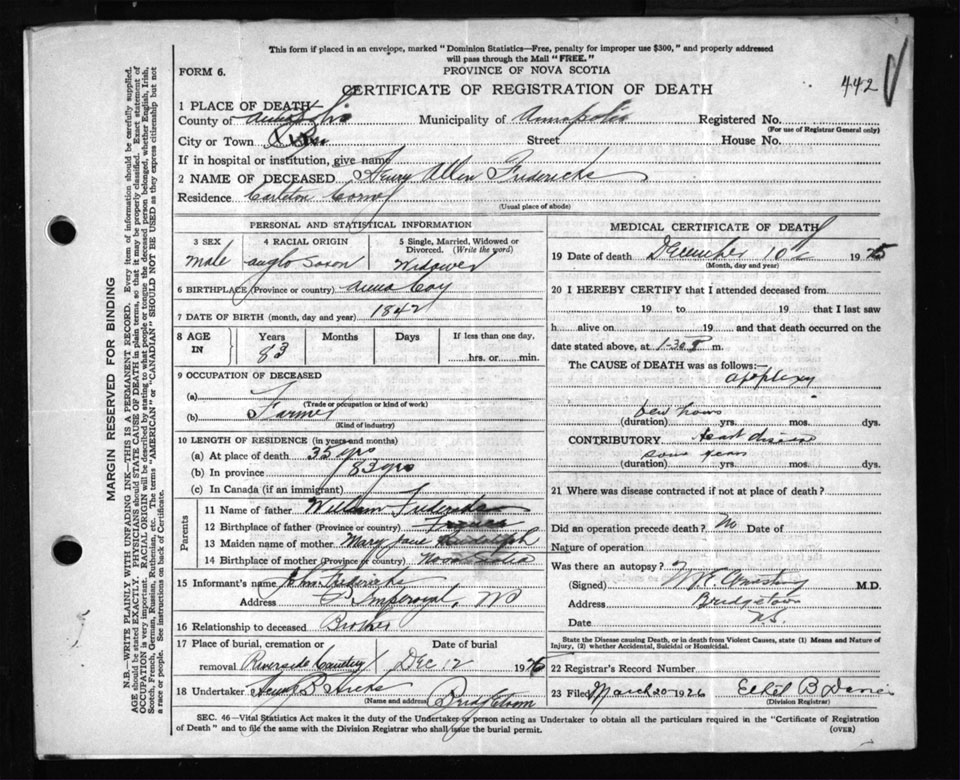 This form if placed in an envelope, marked "Dominion Statistics—Free, penalty for improper use $300," and properly addressed
will pass through the Mail "FREE."
FORM 6.
PROVINCE OF NOVA SCOTIA
442
CERTIFICATE OF REGISTRATION OF DEATH
1 PLACE OF DEATH
County of Municipality of Annapolis Registered No.
(For use of Registrar General only)
City or Town Street House No.
If in hospital or institution, give name
2 NAME OF DECEASED Henry Allen Fredericks
Residence Carleton Corner
(Usual place of abode)
PERSONAL AND STATISTICAL INFORMATION
3 SEX 4 RACIAL ORIGIN 5 Single, Married, Widowed or
Divorced. (Write the word)
male anglo Saxon Widower
6 BIRTHPLACE (Province or country) Anna Coy
7 DATE OF BIRTH (month, day and year) 1842
8 AGE IN Years Months Days If less than one day,
83 hrs. or min.
9 OCCUPATION OF DECEASED
(a)
(Trade or occupation or kind of work)
(b) Farmer
(Kind of industry)
10 LENGTH OF RESIDENCE (in years and months)
(a) At place of death 35 yrs
(b) In province 83 yrs
(c) In Canada (if an immigrant)
Parents
11 Name of father William Fredericks
12 Birthplace of father (Province or country)
13 Maiden name of mother Mary Jane Rudolph
14 Birthplace of mother (Province or country) Nova Scotia
15 Informant's name John Fredericks
Address Imperoyal, NS
16 Relationship to deceased Brother
17 Place of burial, cremation or Date of burial
removal Riverside Dec 12 1925
18 Undertaker
(Name and address) Bridgetown
MEDICAL CERTIFICATE OF DEATH
19 Date of death December 10 1925
(Month, day and year)
20 I HEREBY CERTIFY that I attended deceased from
19 to 19 that I last saw
h alive on 19 and that death occurred on
date stated above, at 1-30 P m.
The CAUSE of DEATH was as follows:
apoplexy
few hours
(duration) yrs. mos. dys.
CONTRIBUTORY heart disease
some years
(duration) yrs. mos. dys.
21 Where was disease contracted if not at place of death?
Did an operation precede death? No Date of
Nature of operation
Was there an autopsy?
(Signed) M.D.
Address Bridgetown
Date N.S.
State the Disease causing Death, or in death from Violent Causes, state (1) Means and Nature of
Injury, (2) whether Accidental, Suicidal or Homicidal.
22 Registrar's Record Number
23 Filed March 20 1926 Ethel B
(Division Registrar)
SEC. 46—Vital Statistics Act makes it the duty of the Undertaker or person acting as Undertaker to obtain all the particulars required in the "Certificate of Registration
of Death" and to file the same with the Division Registrar who shall issue the burial permit.
(OVER)
MARGIN RESERVED FOR BINDING
N.B.—WRITE PLAINLY WITH UNFADING INK—THIS IS A PERMANENT RECORD. Every item of information should be carefully supplied.
AGE should be stated EXACTLY. PHYSICIANS should STATE CAUSE OF DEATH in plain terms, so that it may be properly classified. Exact statement of
OCCUPATION is very important. RACIAL ORIGIN will be described by stating to what people or tongue the deceased person belonged, whether English, Irish,
Scotch, French, German, Russian, Ruthenian, etc. The terms "AMERICAN" or "CANADIAN" SHOULD NOT BE USED as they express citizenship but not
a race or people. See instructions on back of Certificate.